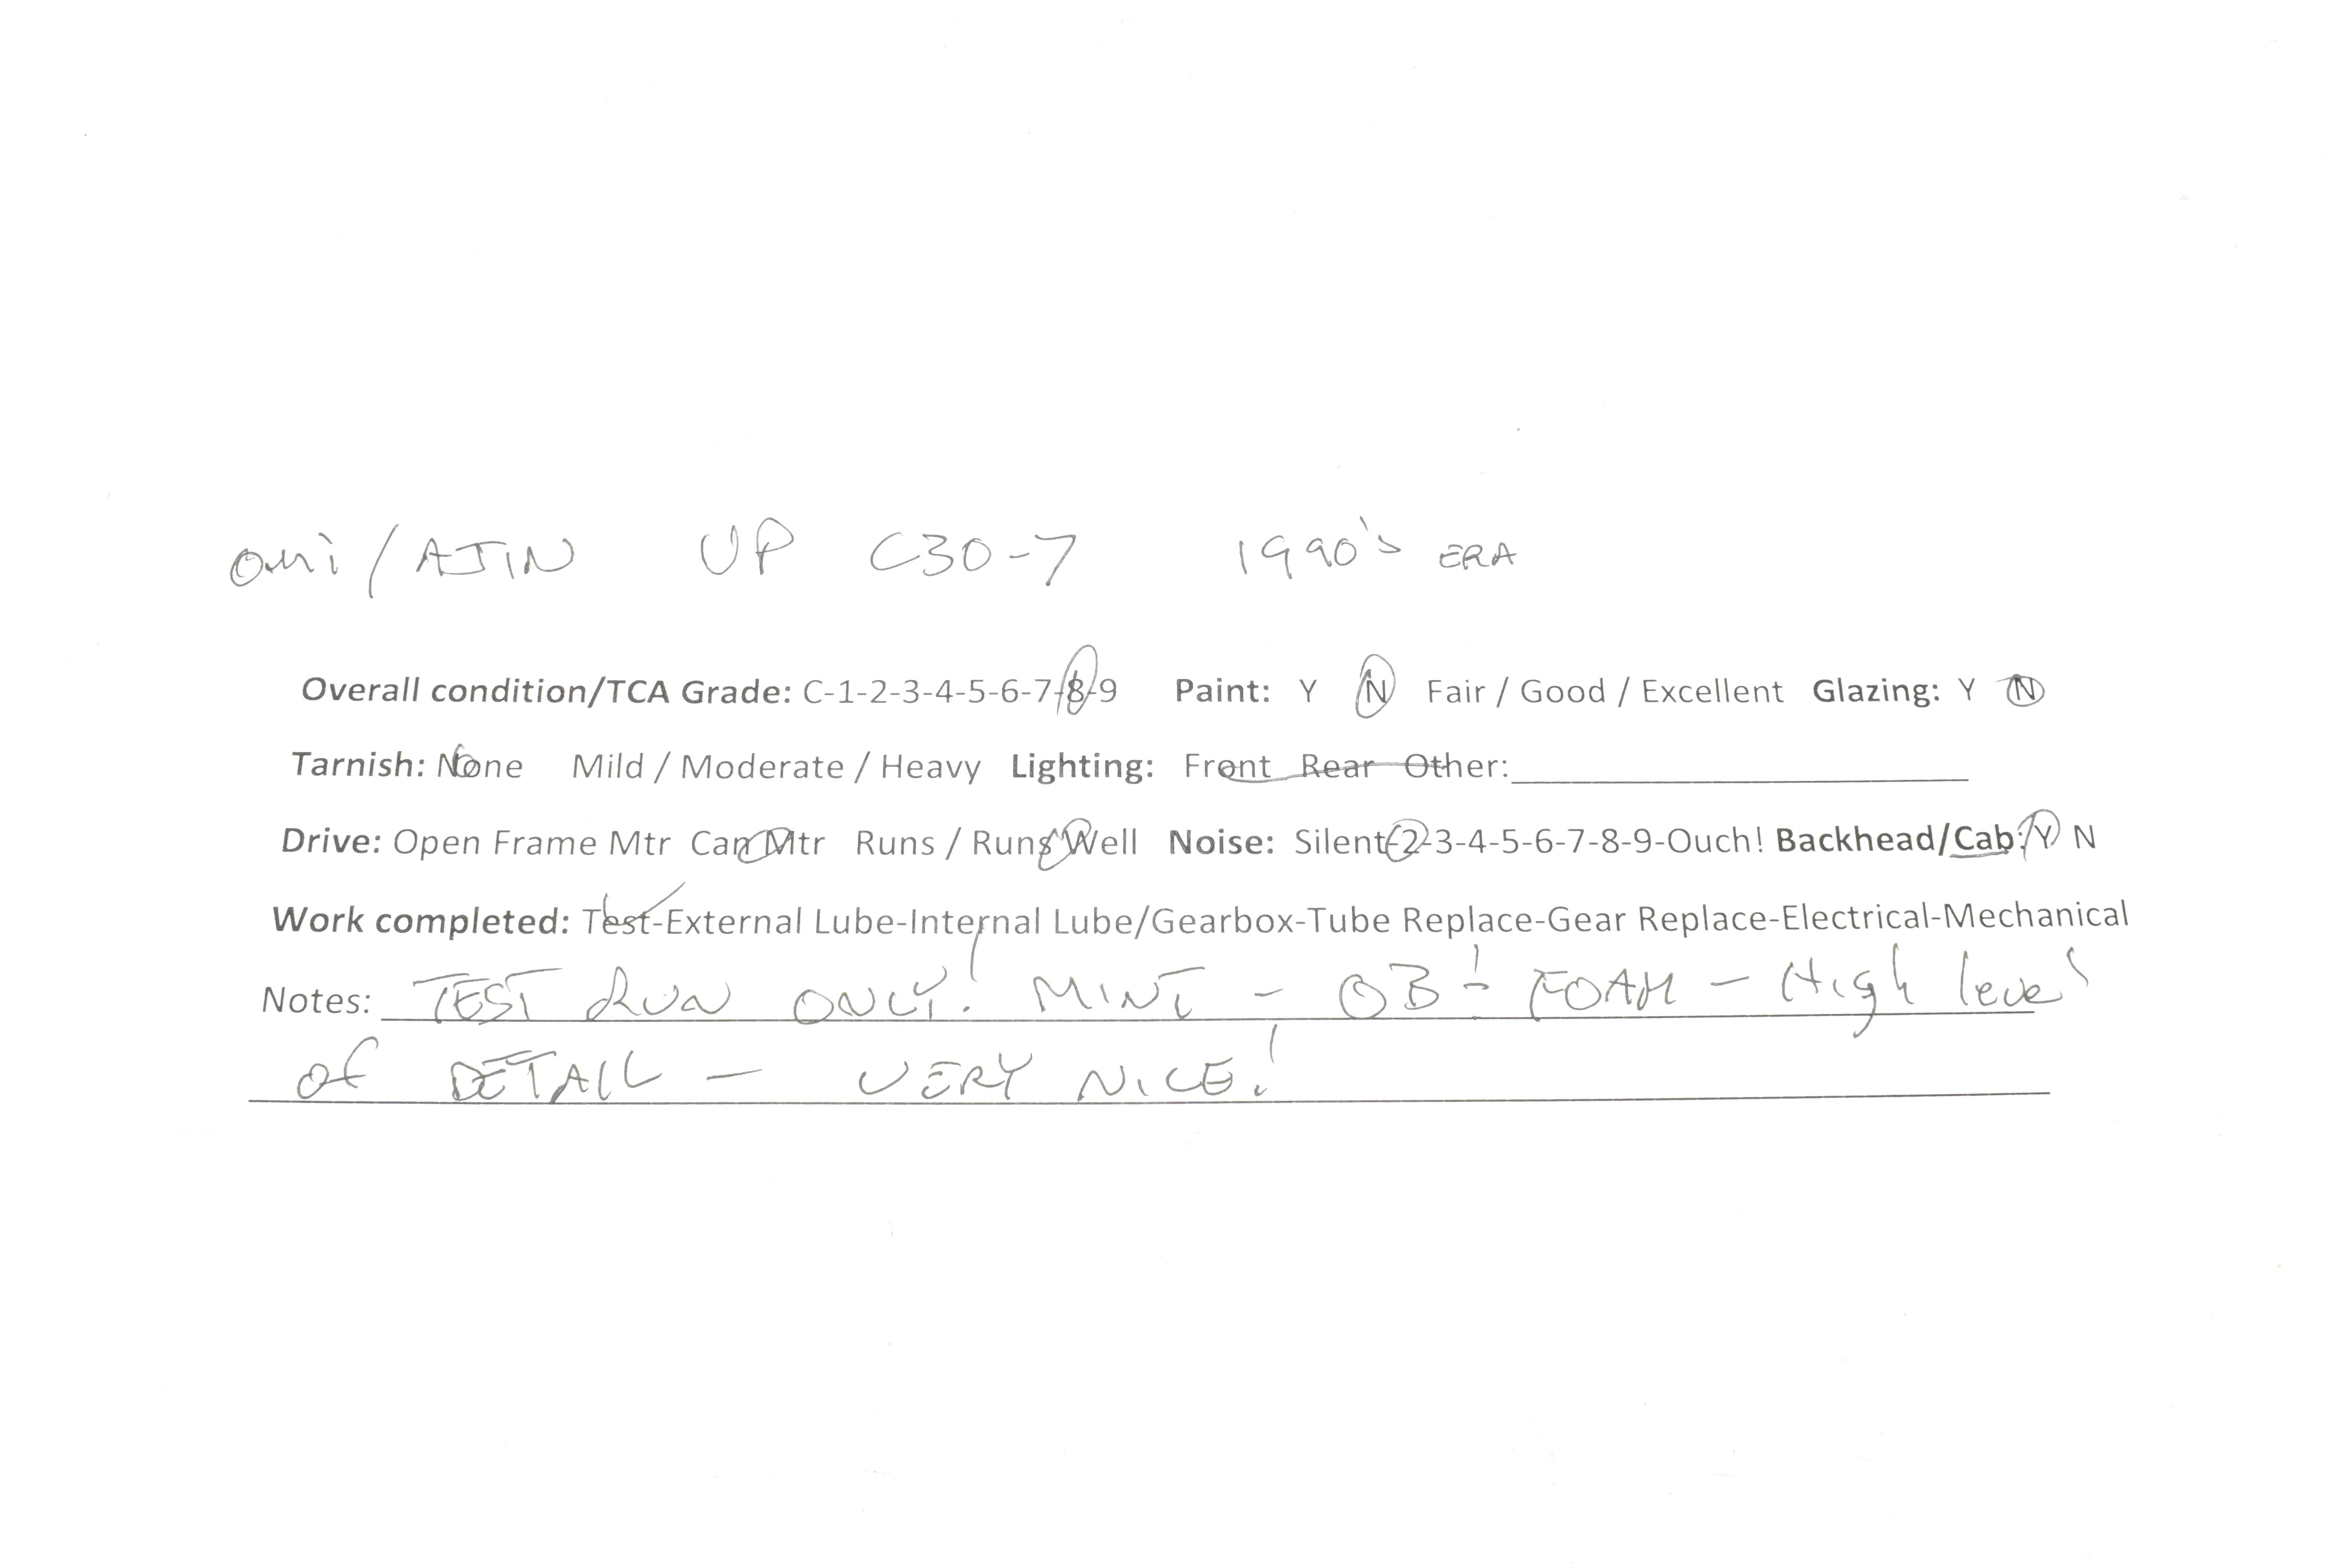 OMI/AJIN UP C30-7 1990's ERA
Overall condition/TCA Grade: C-1-2-3-4-5-6-7-8-9 Paint: Y N Fair / Good / Excellent Glazing: Y N
Tarnish: None Mild / Moderate / Heavy Lighting: Front Rear Other:
Drive: Open Frame Mtr Can Mtr Runs / Runs Well Noise: Silent-2-3-4-5-6-7-8-9-Ouch! Backhead/Cab: Y N
Work completed: Test-External Lube-Internal Lube/Gearbox-Tube Replace-Gear Replace-Electrical-Mechanical
Notes: TEST RUN ONLY! MINT - OB! FOAM - High level
of DETAIL - VERY NICE!